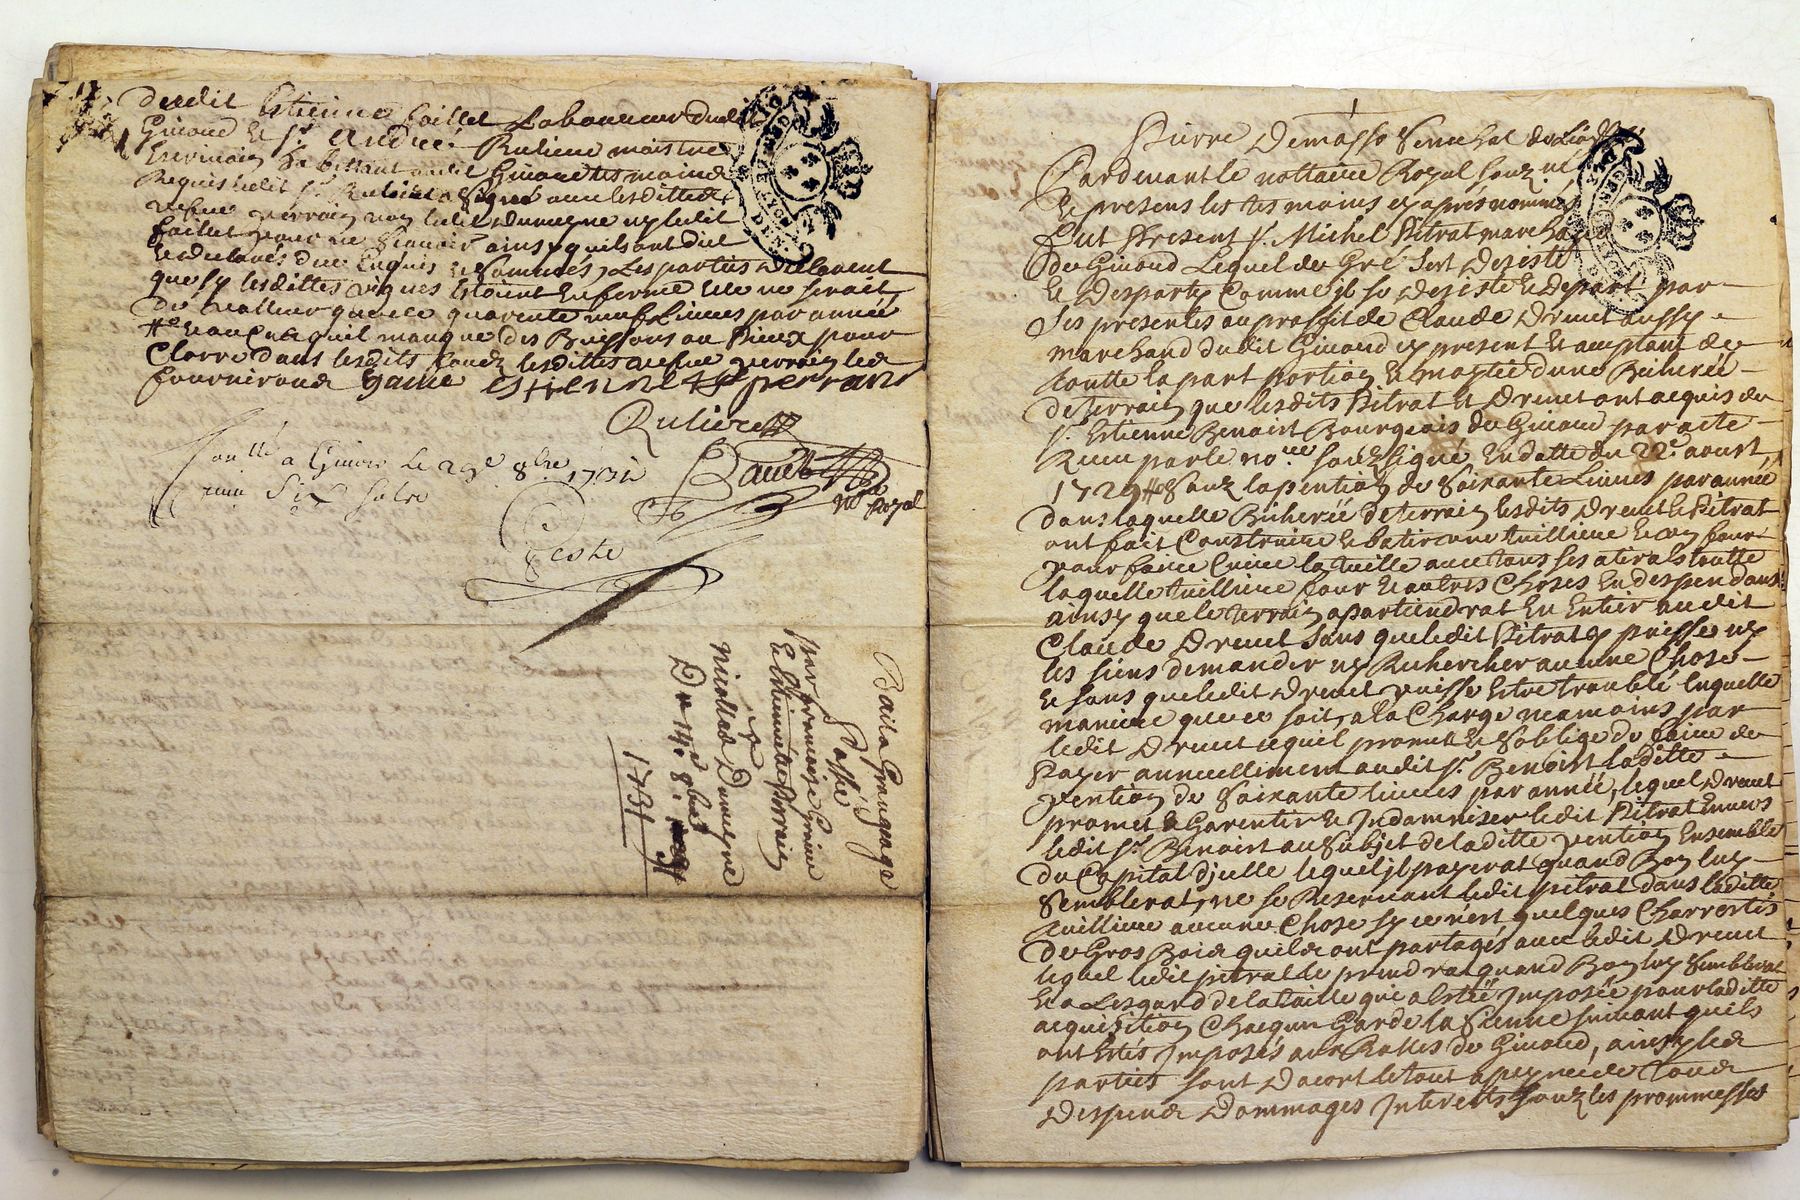 dudit Estienne faillet Laboureur dudit
Givord et Sr. André Ruliere maistre
Escrivain habittant audit Givord tesmoins
Requis ledit Sr. Ruliere a Signé avec lesdittes
vefve perrain non ledit duvergne ny ledit
faillet pour ne Scavoir ainsy quils ont dit
et declaré due Enquis et Sommés, Les parties declarent
que sy lesdittes vignes estoient En ferme Elle ne seroit
de valleur que de quarente neuf Livres par année
et au Cas quil manque des Buissons ou Pieux pour
Clorre dans lesdits fondz lesdittes vefve perrain les
fourniront Estiennette perrain
Rulière
not Royal
a Givors Le 29e 8bre 1731
Six Solz
Teste
Bail a Grangeage
Passé
Par francoise
Estiennette perrain
a
Nicollas Duvergne
Du 14e 8bre
1731
Pierre Demasso Senechal de Lion
Pardevant le nottaire Royal Souzné
Et presens les tesmoins cy après nommés
fut Present Sr. Michel Pitrat marchand
de Givord Lequel de Gré Sest Desisté
Et Desparty Comme jl se Desiste et depart par
Ses presentes au proffit de Claude Drevet aussy
marchand dudit Givord cy present et aceptant de
toutte la part portion et moytié dune Bicherée
de terrain que lesdits Pitrat et Drevet ont acquis de
Sr. Estienne Benoist Bourgeois de Givord par acte
Receu par le nore Souzsigné En datte du 22e aoust
1729 Souz la pention de Soixante Livres par année
dans laquelle Bicherée de terrain lesdits Drevet et Pitrat
ont fait Construire et batir une tuilliere et un four
pour faire Cuire la tuille avec tous ses atirals toutte
laquelle tuilliere four et autres Choses En despendans
ainsy que le terrain apartiendrat En Entier audit
Claude Drevet Sans que ledit Pitrat y puisse ny
les siens demander ny Rechercher aucune Chose
et sans que ledit Drevet puisse Estre troublé En quelle
maniere que ce soit, a la Charge neamoins par
ledit Drevet ce quil promet et Soblige de faire de
Payer annuellement audit Sr. Benoist laditte
pention de Soixante livres par année, lequel Drevet
promet de Garentir et Indamniser ledit Pitrat Envers
ledit Sr. Benoist au Subjet de laditte pention Ensemble
du Capital djcelle lequel jl payerat quand Bon luy
Semblerat, ne se Reservant ledit pitrat dans laditte
tuilliere aucune Chose sy ce nest quelques Charretés
de Gros Bois quils ont partagés avec ledit Drevet
lequel ledit pitrat le prendrat quand Bon luy Semblerat
Et a Lesgard de la taille qui a Esté Imposée pour laditte
acquisition Chacqun Garde la Sienne suivant quils
ont Estés Imposés aux Rolles de Givord, ainsy les
parties sont Dacort le tout a peyne de tous
Despens Dommages Interests Souz les prommesses